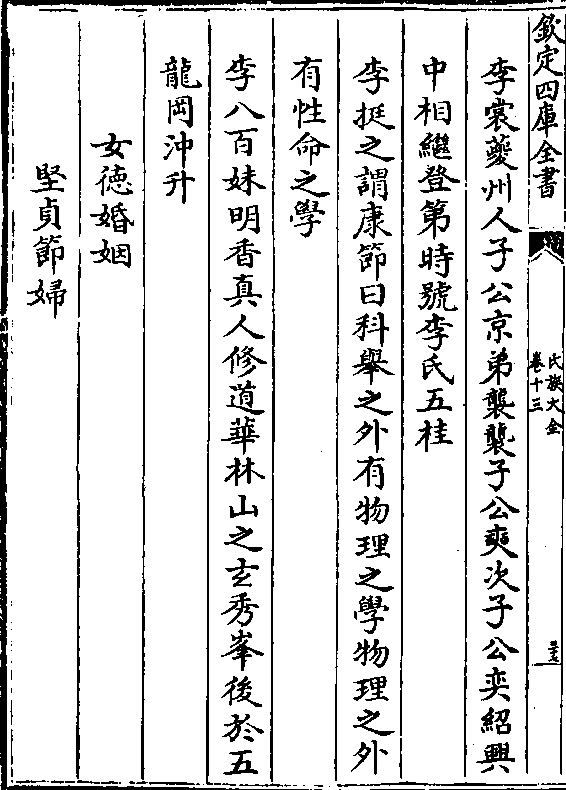 欽定四庫全書
氏族大全
卷十三
李裳夔州人子公京弟襲襲子公奭次子公奕紹興
中相繼登第時號李氏五桂
李挺之謂康節曰科舉之外有物理之學物理之外
有性命之學
李八百妹明香真人修道華林山之玄秀峯後於五
龍岡沖升
女徳婚姻
堅貞節婦